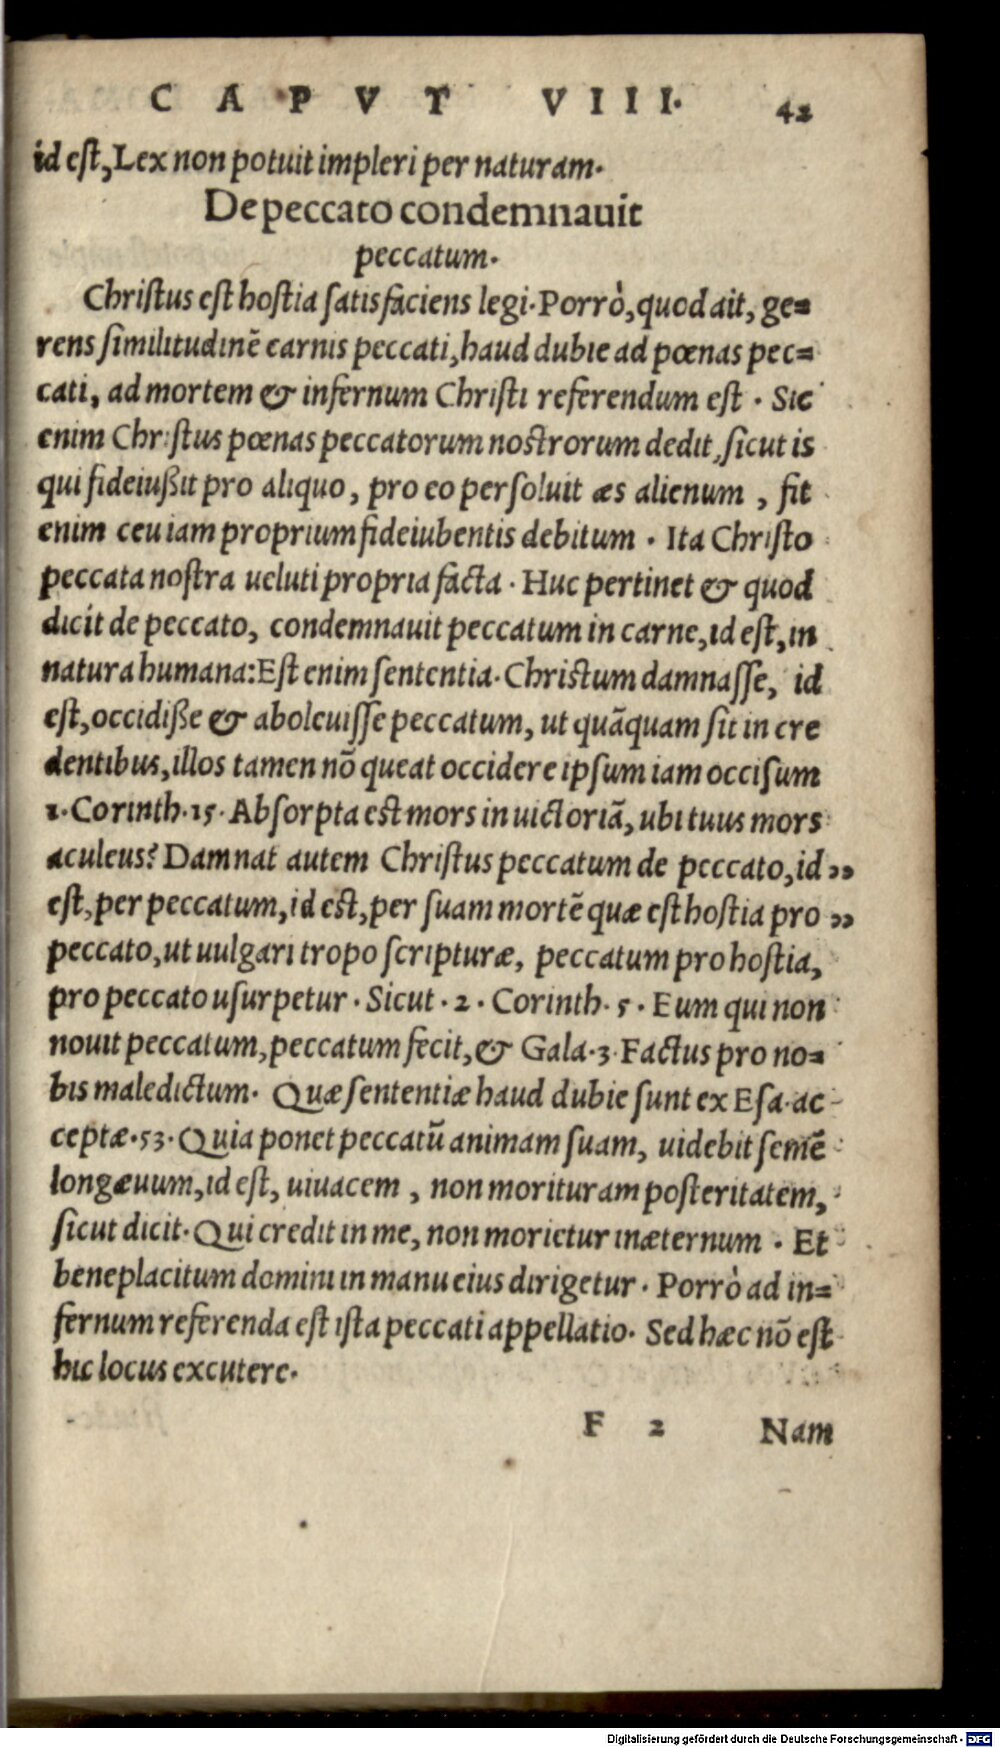 CAPVT VIII. 42
id est, Lex non potuit impleri per naturam.
De peccato condemnauit
peccatum.
Christus est hostia satisfaciens legi. Porrò, quod ait, ge=
rens similitudinē carnis peccati, haud dubie ad pœnas pec=
cati, ad mortem & infernum Christi referendum est. Sic
enim Christus pœnas peccatorum nostrorum dedit, sicut is
qui fideiußit pro aliquo, pro eo persoluit æs alienum, fit
enim ceu iam proprium fideiubentis debitum. Ita Christo
peccata nostra ueluti propria facta. Huc pertinet & quod
dicit de peccato, condemnauit peccatum in carne, id est, in
natura humana: Est enim sententia. Christum damnasse, id
est, occidiße & aboleuisse peccatum, ut quāquam sit in cre
dentibus, illos tamen nō queat occidere ipsum iam occisum
1. Corinth. 15. Absorpta est mors in uictoriā, ubi tuus mors
aculeus? Damnat autem Christus peccatum de peccato, id »
est, per peccatum, id est, per suam mortē quæ est hostia pro »
peccato, ut uulgari tropo scripturæ, peccatum pro hostia,
pro peccato usurpetur. Sicut. 2. Corinth. 5. Eum qui non
nouit peccatum, peccatum fecit, & Gala. 3. Factus pro no=
bis maledictum. Quæ sententiæ haud dubie sunt ex Esa. ac-
ceptæ. 53. Quia ponet peccatū animam suam, uidebit semē
longæuum, id est, uiuacem, non morituram posteritatem,
sicut dicit. Qui credit in me, non morietur inæternum. Et
beneplacitum domini in manu eius dirigetur. Porrò ad in=
fernum referenda est ista peccati appellatio. Sed hæc nō est
hic locus excutere.
F 2 Nam
Digitalisierung gefördert durch die Deutsche Forschungsgemeinschaft - DFG